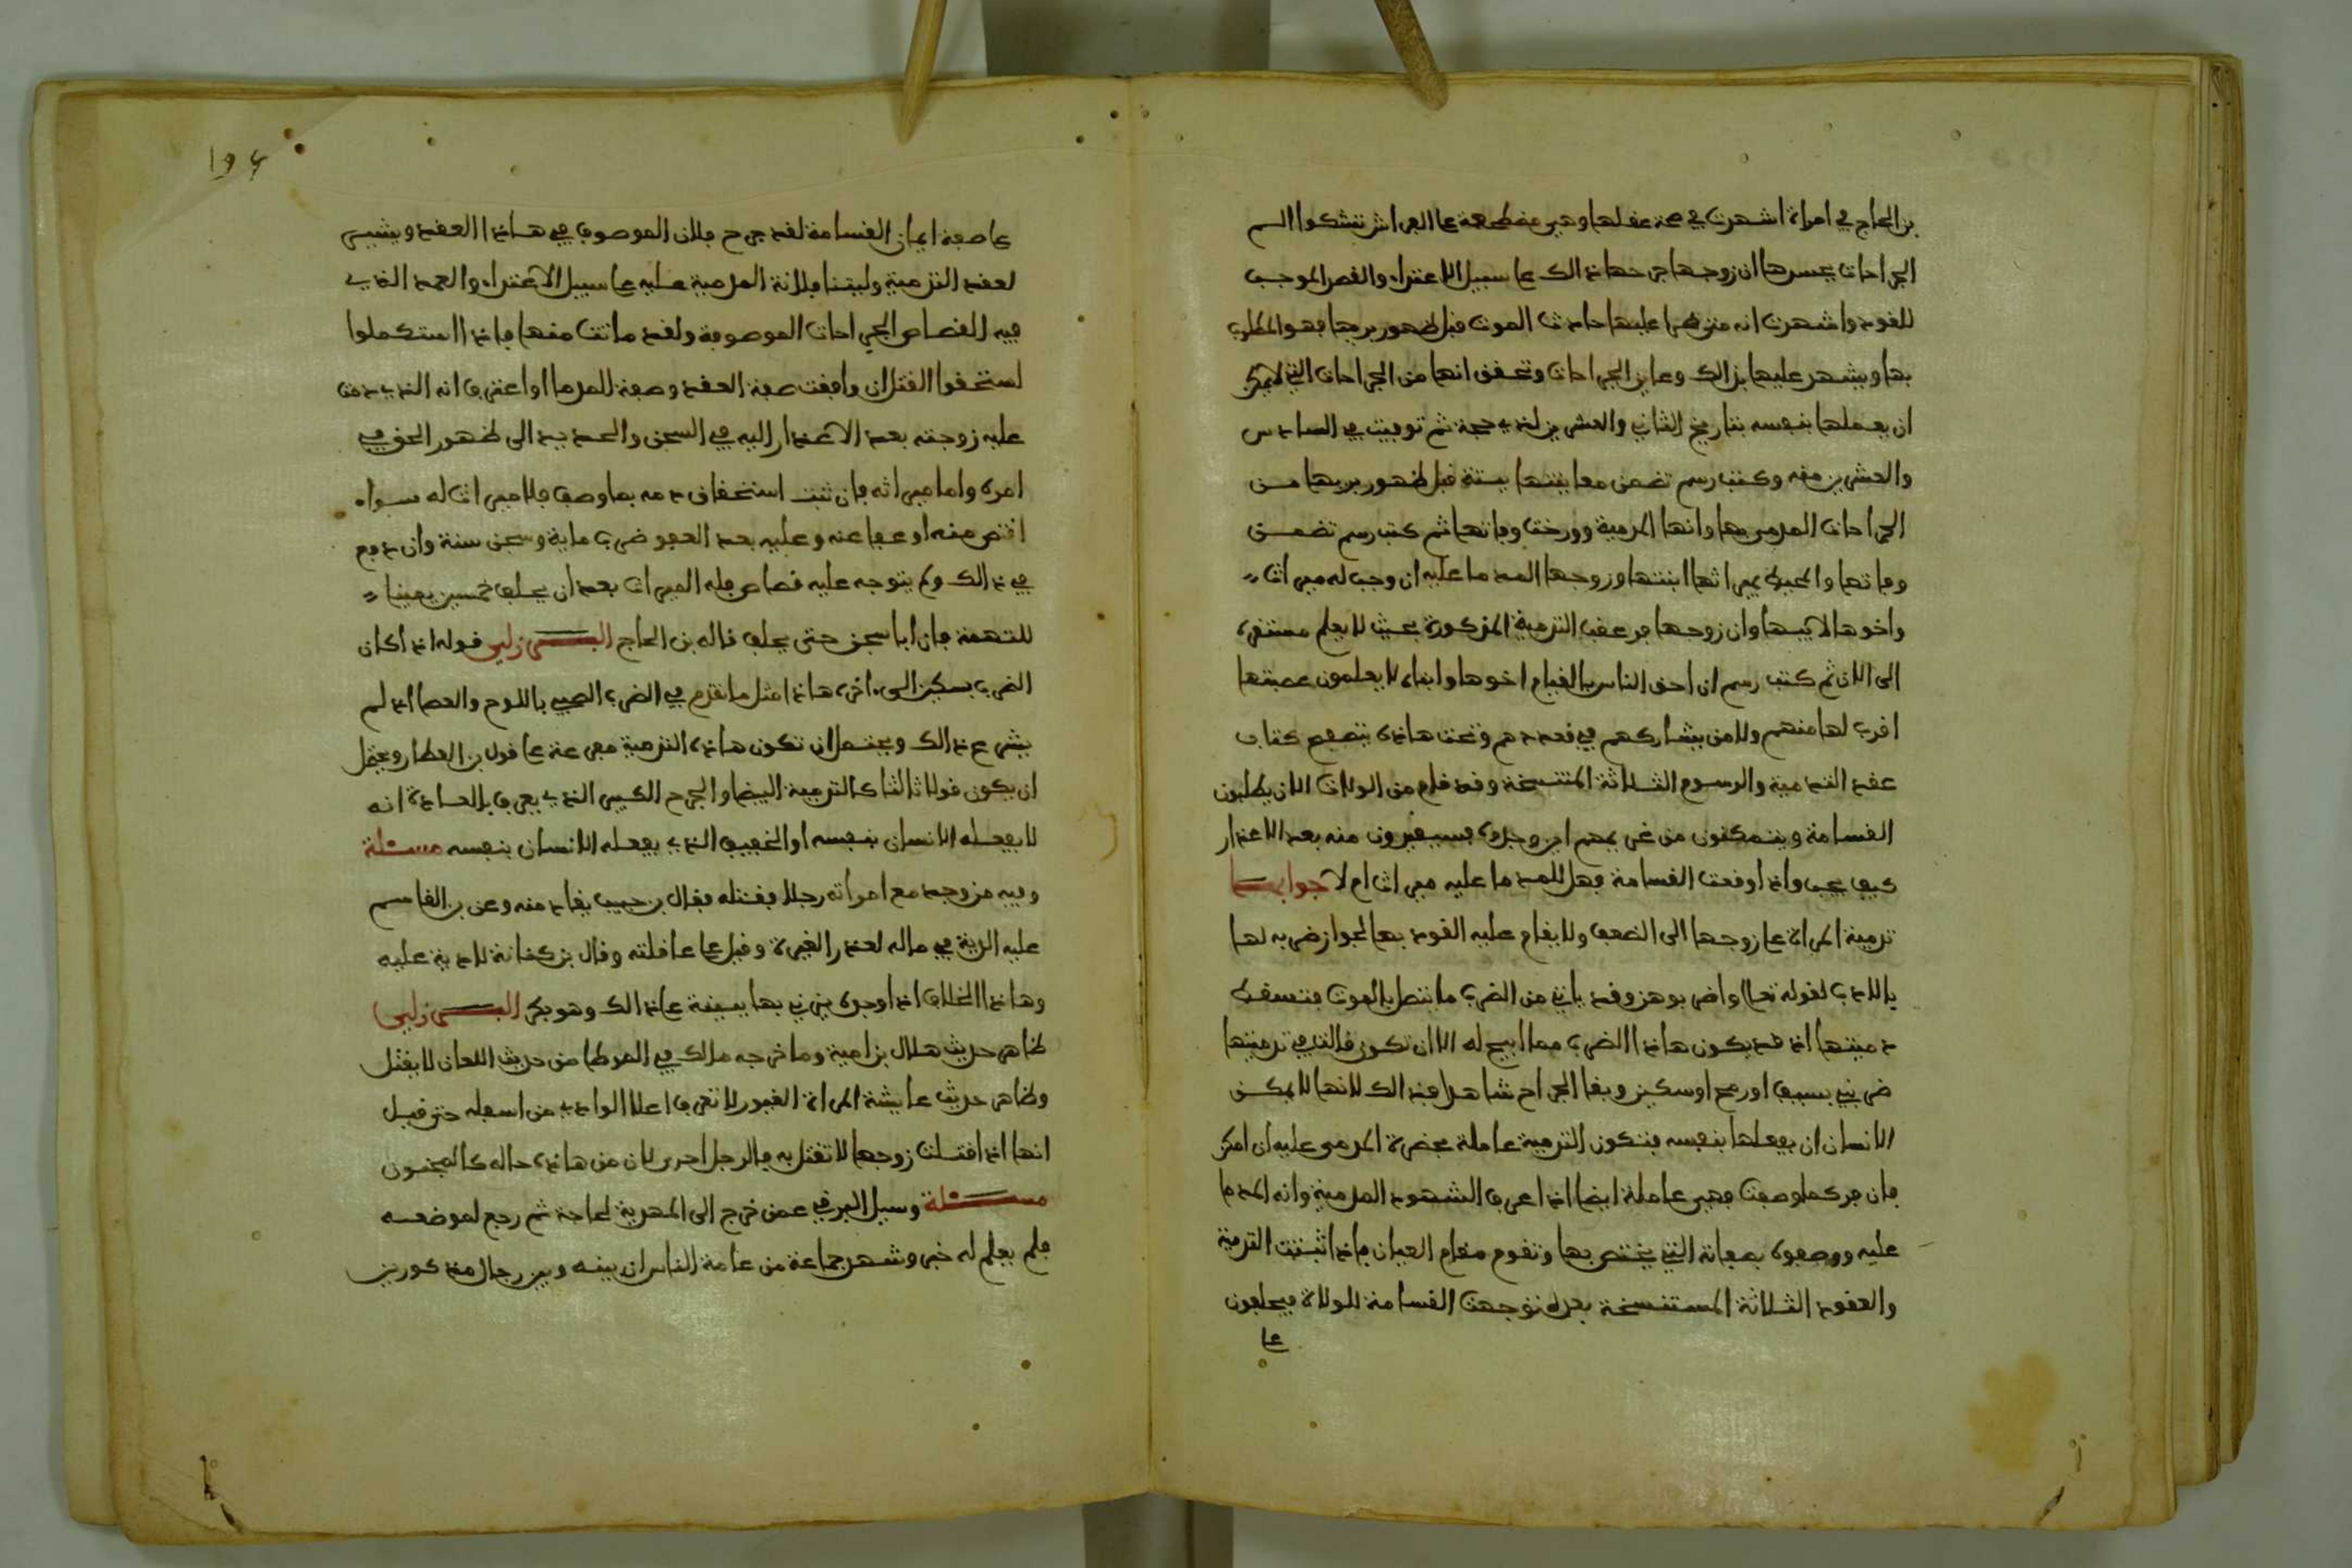 بن الحاج في امراة اشهدت في صحة عقلها وهي مضطجعة على الفراش تشكوا الم
الجراحات بجسدها ان زوجها جرحها ذالك على سبيل الاعتداء والقصد الموجب
للقود واشهدت انه متى طرا عليها حادث الموت قبل ظهور بريها فهو المطلوب
بها ويشهد عليها بذالك وعاين الجراحات وتحقق انها من الجراحات التي لا يمكن
ان يعملها بنفسه بتاريخ الثاني والعشرين لذي حجة ثم توفيت في السادس
والعشرين منه وكتب رسم تضمن معاينتها ميتة قبل ظهور بريها مـن
الجراحات المدمى بها وانها المدمية وورخت وفاتها ثم كتب رسم تضمـن
وفاتها والمحيط بميراثها ابنتها وزوجها المدما عليه ان وجب له ميراث
واخوها لابيها وان زوجها فر عقب التدمية المذكورة بحيث لا يعلم مستقره
الى الان ثم كتب رسم ان احق الناس بالقيام اخوها وابناء لا يعلمون عصبتها
اقرب لها منهم ولا من يشاركهم في قعددهم وتحت هاذه بتصفح كتاب
عقد التدامية والرسوم الثلاثة المنتسخة وقد قام من الولات الان يطلبون
القسامة ويتمكنون من غريمهم اين وجدوه فيستقيدون منه بعد الاعذار
كيف يجب واذا وقعت القسامة وهل للمدما عليه ميراث ام لا جوابهـا
تدمية المراة على زوجها الى الضعف ولا يقام عليه القود بها لجواز ضربه لها
بالادب لقوله تعالى واضربوهن وقد ياتي من الضرب ما يتصل بالموت فتسقط
دميتها اذ قد يكون هاذا الضرب مما ابيح له الا ان تكون قالت في تدميتها
ضربني بسيف او رمح او سكين وبقا الجراح شاهد بذالك لانها لا يمكن
الانسان ان يفعلها بنفسه فتكون التدمية عاملة بحضرة المدمى عليه ان امكن
فان فر كما وصفت فهي عاملة ايضا اذا عرف الشهود المدمية وانه المدما
عليه ووصفوه بصفاته التي يختص بها وتقوم مقام العيان فاذا ثبتت التدمية
والعقود الثلاثة المستنسخة بعده توجهت القسامة للولاة فيحلفون
على
١٩٤
على صفة ايمان القسامة لقد جرح فلان الموصوف في هـاذا العقد ويشير
لعقد التدمية وليتنا فلانة المدمية عليه على سبيل الاعتداء والعمد الذي
فيه القصاص الجراحات الموصوفة ولقد ماتت منها فاذا استكملوا
استحقوا القتل ان وافقت صفة العقد وصفة للمدما او اعترف انه الذي دمت
عليه زوجته بعد الاعذار اليه في السجن والحديد الى ظهور الحق في
امره واما ميراثه فان ثبت استحقاق دمه بما وصف فلا ميراث له سـواء
اقتص منه او عفا عنه وعليه بعد العفو ضرب ماية وسجن سنة وان دفع
في ذالك ولم يتوجه عليه قصاص فله الميراث بعد ان يحلف خمسين يمينا
للتهمة فان ابا سجن حتى يحلف قاله بن الحاج البـرزلي قوله اذا كان
الضرب بسكين الى اخره هاذا مثل ما تقدم في الضرب الصبي باللوح والعصا اذ لم
يشرع ذالك ويحتمل ان تكون هاذه التدمية مفرعة على قول بن العطار ويحتمل
ان يكون قولا ثالثا كالتدمية البيضا والجرح الكبير الذي يعرف بالعادة انه
لا يفعله الانسان بنفسه او الخفيف الذي يفعله الانسان بنفسه مسـئلة
وفيه من وجد مع امراته رجلا فقتله فقال بن حبيب يقاد منه وعن بن القاسم
عليه الدية في ماله لعذر الغيرة وقيل على عاقلته وقال بن كنانة لا دية عليه
وهاذا الخلاف اذا وجده يزني بها ببينة على ذالك وهو بكر البـرزلي
ظاهر حديث هلال بن امية وما خرجه مالك في الموطا من حديث اللعان لا يقتل
وظاهر حديث عايشة المراة الغيور لا تعرف اعلا الوادي من اسفله حتى قيـل
انها اذا قتلت زوجها لا تقتل به فالرجل احرى لان من هاذه حاله كالمجنون
مسـئلة وسيل البرقي عمن خرج الى المهدية لحاجة ثم رجع لموضعه
فلم يعلم له خبر وشهد جماعة من عامة الناس ان بينه وبين رجال مذكورين